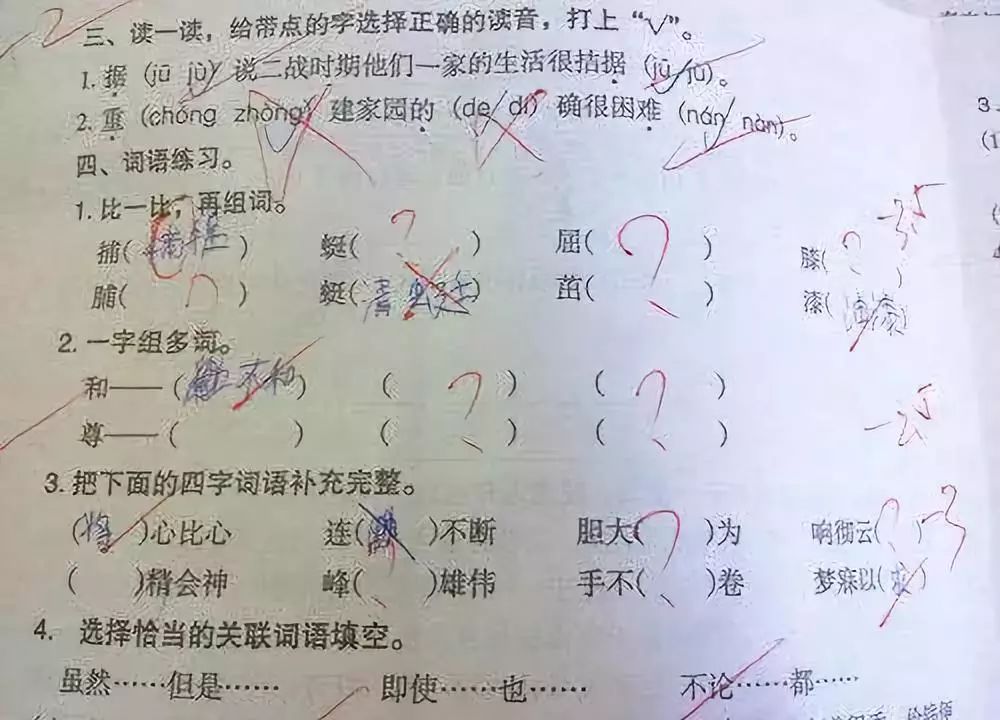 三、读一读，给带点的字选择正确的读音，打上“√”。
1. 据（jū jù）说二战时期他们一家的生活很拮据（jū jù）。
2. 重（chóng zhòng）建家园的（de dí）确很困难（nán nàn）。
四、词语练习。
1. 比一比，再组词。
捕（ ） 蜓（ ） 屈（ ） 膝（ ）
脯（ ） 蜓（青蜓） 茁（ ） 漆（油漆）
-3.5
2. 一字组多词。
和——（ ） （ ） （ ）
尊——（ ） （ ） （ ）
-2.5
3. 把下面的四字词语补充完整。
（将）心比心 连（ ）不断 胆大（ ）为 响彻云（ ） -3
（ ）精会神 峰（ ）雄伟 手不（ ）卷 梦寐以（求）
4. 选择恰当的关联词语填空。
虽然……但是…… 即使……也…… 不论……都……